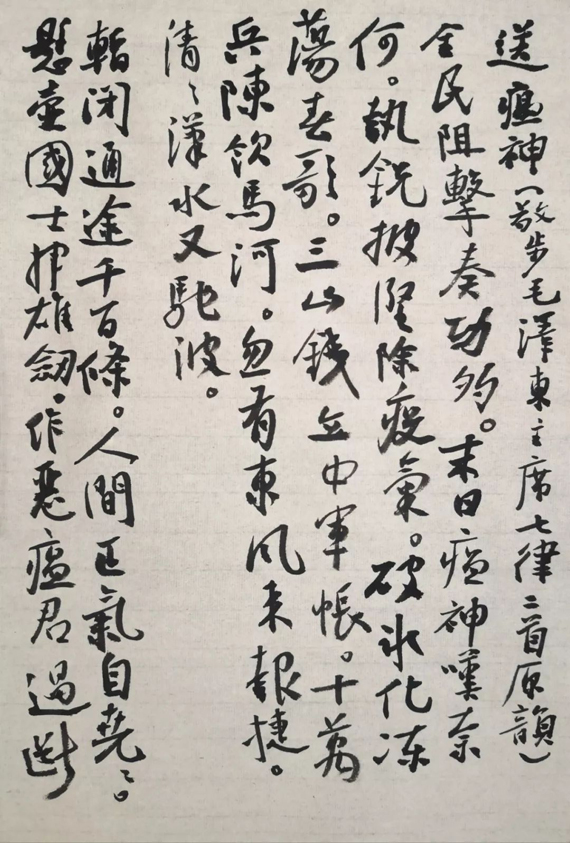 送瘟神(敬步毛澤東主席七律二首原韻)
全民阻擊奏功多。末日瘟神嘆奈
何。執銳披堅除疫氣。破冰化凍
蕩春歌。三山錢立中軍帳。十萬
兵陳飲馬河。忽有東風來報捷。
清〻漢水又馳波。
暫閉通途千百條。人間正氣自堯〻。
懸壺國士揮雄劍。作惡瘟君過斷